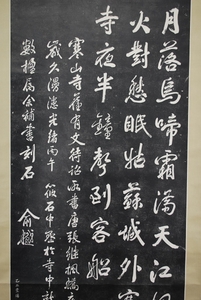 月落烏啼霜滿天江
火對愁眠姑蘇城外寒
寺夜半鐘聲到客船
寒山寺舊有文待詔所書唐張繼楓橋
歲久漫漶光緒丙午筱石中丞於寺中新
數楹屬余補書刻石
俞樾